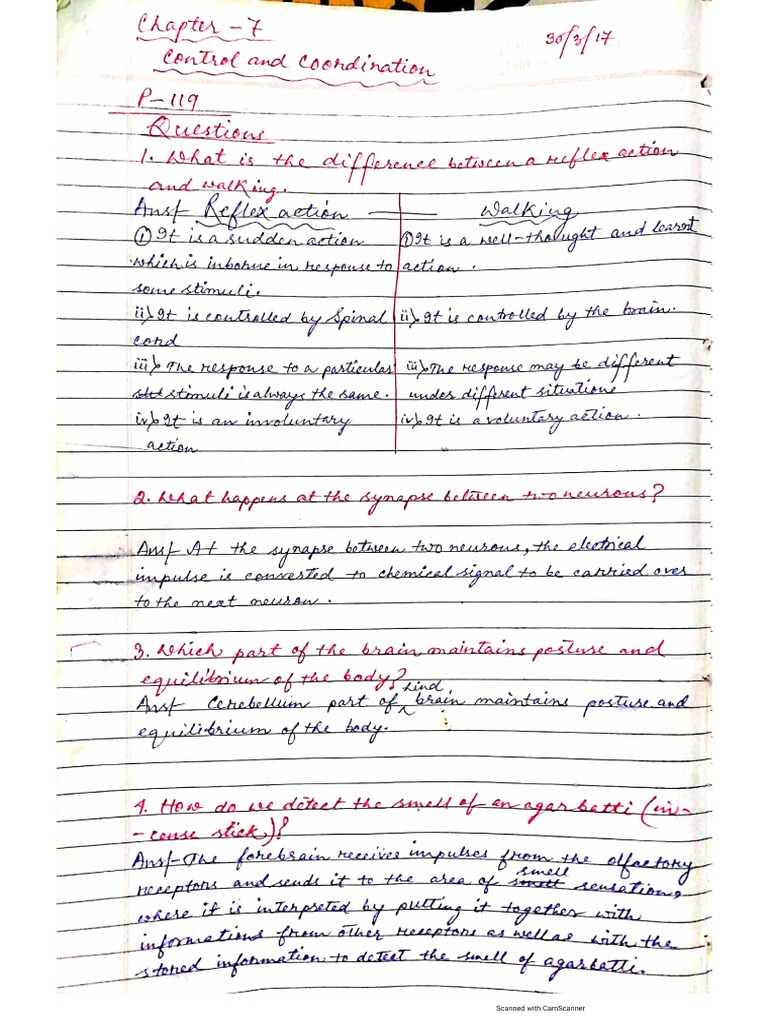 Chapter - 7
30/3/17
Control and Coordination
P-119
Questions
1. What is the difference between a reflex action
and walking.
Ans/- Reflex action ——— Walking
① It is a sudden action
which is inborne in response to
some stimuli.
ii) It is controlled by Spinal
cord
iii) The response to a particular
stimuli is always the same.
iv) It is an involuntary
action
① It is a well-thought and learnt
action.
ii) It is controlled by the brain.
iii) The response may be different
under different situations
iv) It is a voluntary action.
2. What happens at the synapse between two neurons?
Ans/- At the synapse between two neurons, the electrical
impulse is converted to chemical signal to be carried over
to the next neuron.
3. Which part of the brain maintains posture and
equilibrium of the body?
Ans/- Cerebellum part of hind brain maintains posture and
equilibrium of the body.
4. How do we detect the smell of an agarbatti (in-
-cense stick)?
Ans/- The forebrain receives impulses from the olfactory
receptors and sends it to the area of smell sensation,
where it is interpreted by putting it together with
informations from other receptors as well as with the
stored information to detect the smell of agarbatti.
Scanned with CamScanner